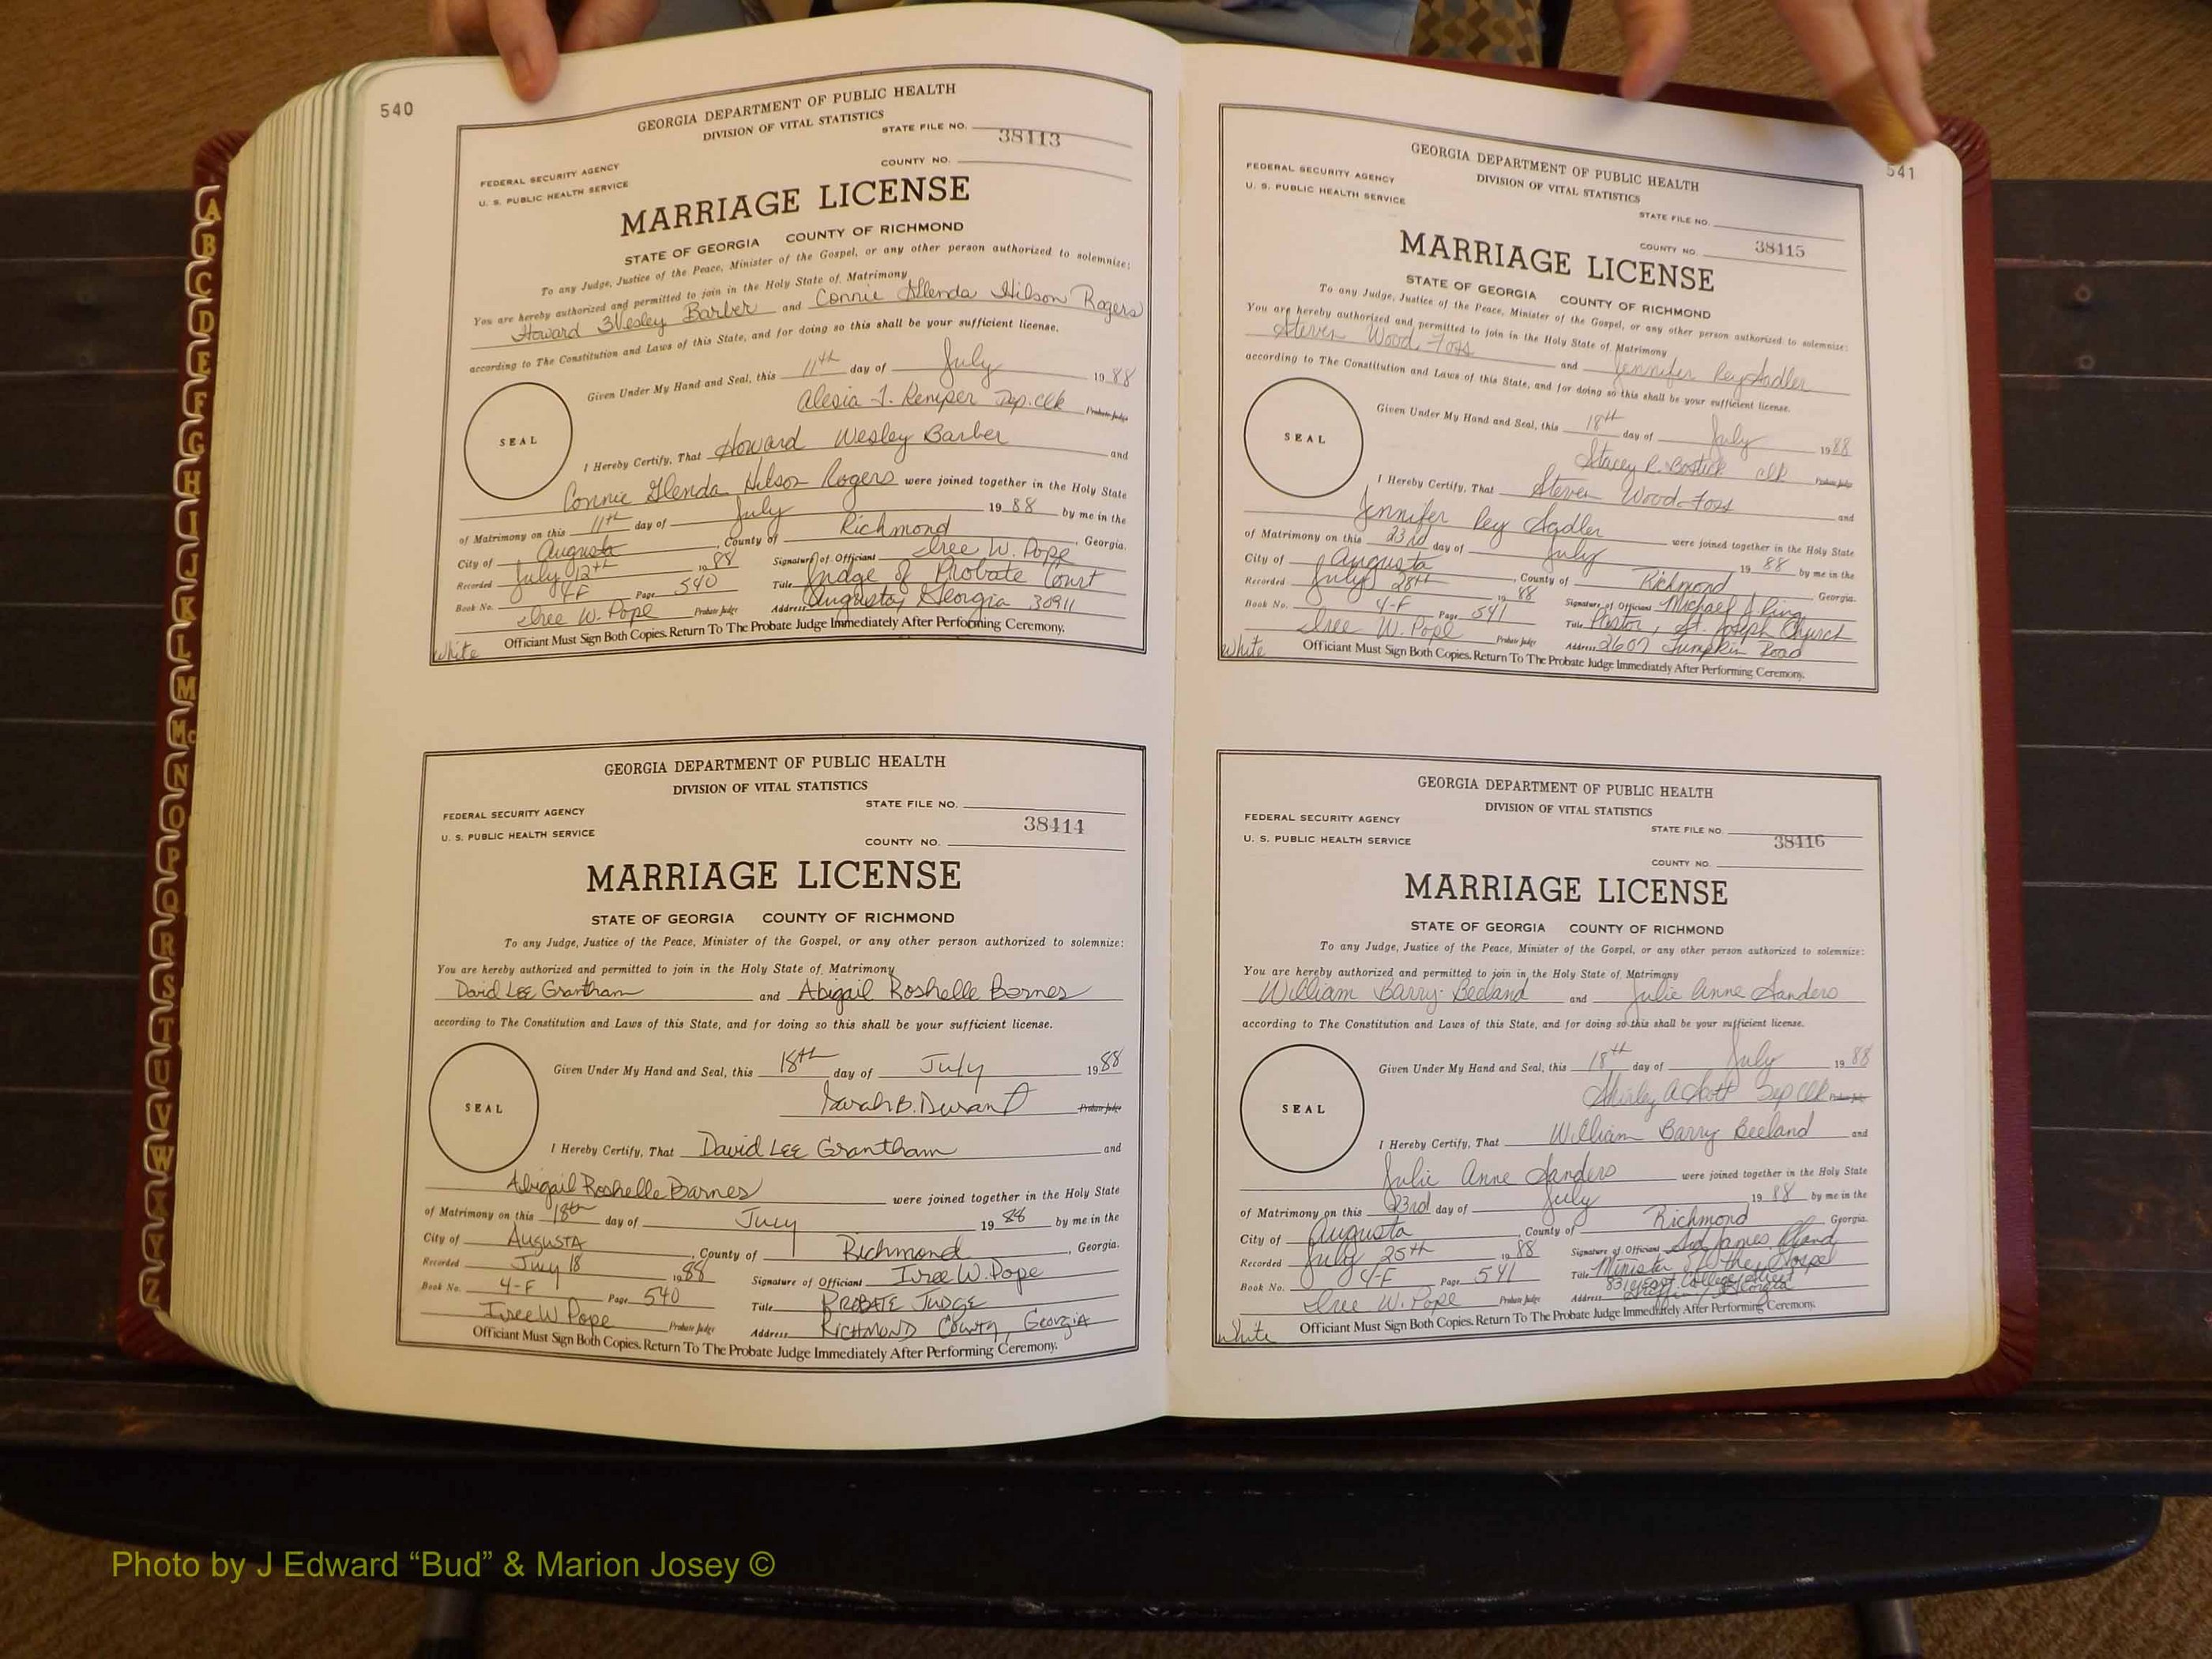 540
GEORGIA DEPARTMENT OF PUBLIC HEALTH
DIVISION OF VITAL STATISTICS
STATE FILE NO. 38413
FEDERAL SECURITY AGENCY
U. S. PUBLIC HEALTH SERVICE
COUNTY NO.
MARRIAGE LICENSE
STATE OF GEORGIA COUNTY OF RICHMOND
To any Judge, Justice of the Peace, Minister of the Gospel, or any other person authorized to solemnize:
You are hereby authorized and permitted to join in the Holy State of Matrimony
Howard Wesley Barber and Connie Glenda Hilson Rogers
according to The Constitution and Laws of this State, and for doing so this shall be your sufficient license.
SEAL
Given Under My Hand and Seal, this 11th day of July 1988
Alesia Dep. Clk Probate Judge
I Hereby Certify, That Howard Wesley Barber and
Connie Glenda Hilson Rogers were joined together in the Holy State
of Matrimony on this 11th day of July 1988 by me in the
City of Augusta, County of Richmond, Georgia.
Recorded July 12th 1988 Signature of Official Isree W. Pope
Book No. 4-F Page 540 Title Judge of Probate Court
Isree W. Pope Probate Judge Address Augusta, Georgia 30911
Officiant Must Sign Both Copies. Return To The Probate Judge Immediately After Performing Ceremony.
White
GEORGIA DEPARTMENT OF PUBLIC HEALTH
DIVISION OF VITAL STATISTICS
STATE FILE NO.
FEDERAL SECURITY AGENCY
38414
U. S. PUBLIC HEALTH SERVICE
COUNTY NO.
MARRIAGE LICENSE
STATE OF GEORGIA COUNTY OF RICHMOND
To any Judge, Justice of the Peace, Minister of the Gospel, or any other person authorized to solemnize:
You are hereby authorized and permitted to join in the Holy State of Matrimony
David LEE Grantham and Abigail Roshelle Barnes
according to The Constitution and Laws of this State, and for doing so this shall be your sufficient license.
SEAL
Given Under My Hand and Seal, this 18th day of July 1988
Sarah B. Durant Probate Judge
I Hereby Certify, That David LEE Grantham and
Abigail Roshelle Barnes were joined together in the Holy State
of Matrimony on this 18th day of July 1988 by me in the
City of AUGUSTA, County of Richmond, Georgia.
Recorded July 18 1988 Signature of Officiant Isree W. Pope
Book No. 4-F Page 540 Title PROBATE JUDGE
Isree W Pope Probate Judge Address RICHMOND COUNTY, GEORGIA
Officiant Must Sign Both Copies. Return To The Probate Judge Immediately After Performing Ceremony.
541
GEORGIA DEPARTMENT OF PUBLIC HEALTH
DIVISION OF VITAL STATISTICS
FEDERAL SECURITY AGENCY
U. S. PUBLIC HEALTH SERVICE
STATE FILE NO.
COUNTY NO. 38415
MARRIAGE LICENSE
STATE OF GEORGIA COUNTY OF RICHMOND
To any Judge, Justice of the Peace, Minister of the Gospel, or any other person authorized to solemnize:
You are hereby authorized and permitted to join in the Holy State of Matrimony
Steven Wood Foss and Jennifer Sadler
according to The Constitution and Laws of this State, and for doing so this shall be your sufficient license.
SEAL
Given Under My Hand and Seal, this 18th day of July 1988
Stacey R. Bostick clk Probate Judge
I Hereby Certify, That Steven Wood Foss and
Jennifer Sadler were joined together in the Holy State
of Matrimony on this 23rd day of July 1988 by me in the
City of Augusta, County of Richmond Georgia.
Recorded July 28th 1988 Signature of Officiant Michael
Book No. 4-F Page 541 Title Pastor, St. Joseph Church
Isree W. Pope Probate Judge Address 2607 Lumpkin Road
Officiant Must Sign Both Copies. Return To The Probate Judge Immediately After Performing Ceremony.
White
GEORGIA DEPARTMENT OF PUBLIC HEALTH
DIVISION OF VITAL STATISTICS
FEDERAL SECURITY AGENCY
STATE FILE NO.
U. S. PUBLIC HEALTH SERVICE
38416
COUNTY NO.
MARRIAGE LICENSE
STATE OF GEORGIA COUNTY OF RICHMOND
To any Judge, Justice of the Peace, Minister of the Gospel, or any other person authorized to solemnize:
You are hereby authorized and permitted to join in the Holy State of Matrimony
William Barry Beeland and Julie Anne Sanders
according to The Constitution and Laws of this State, and for doing so this shall be your sufficient license.
SEAL
Given Under My Hand and Seal, this 18th day of July 1988
Shirley A Scott Dep Clk Probate Judge
I Hereby Certify, That William Barry Beeland and
Julie Anne Sanders were joined together in the Holy State
of Matrimony on this 23rd day of July 1988 by me in the
City of Augusta, County of Richmond Georgia.
Recorded July 25th 1988 Signature of Officiant James
Book No. 4-F Page 541 Title Minister of the Gospel
Isree W. Pope Probate Judge Address 831 East College Street Griffin, Georgia
Officiant Must Sign Both Copies. Return To The Probate Judge Immediately After Performing Ceremony.
White
A
B
C
D
E
F
G
H
I
J
K
L
M
Mc
N
O
P
Q
R
S
T
U
V
W
X
Y
Z
Photo by J Edward “Bud” & Marion Josey ©